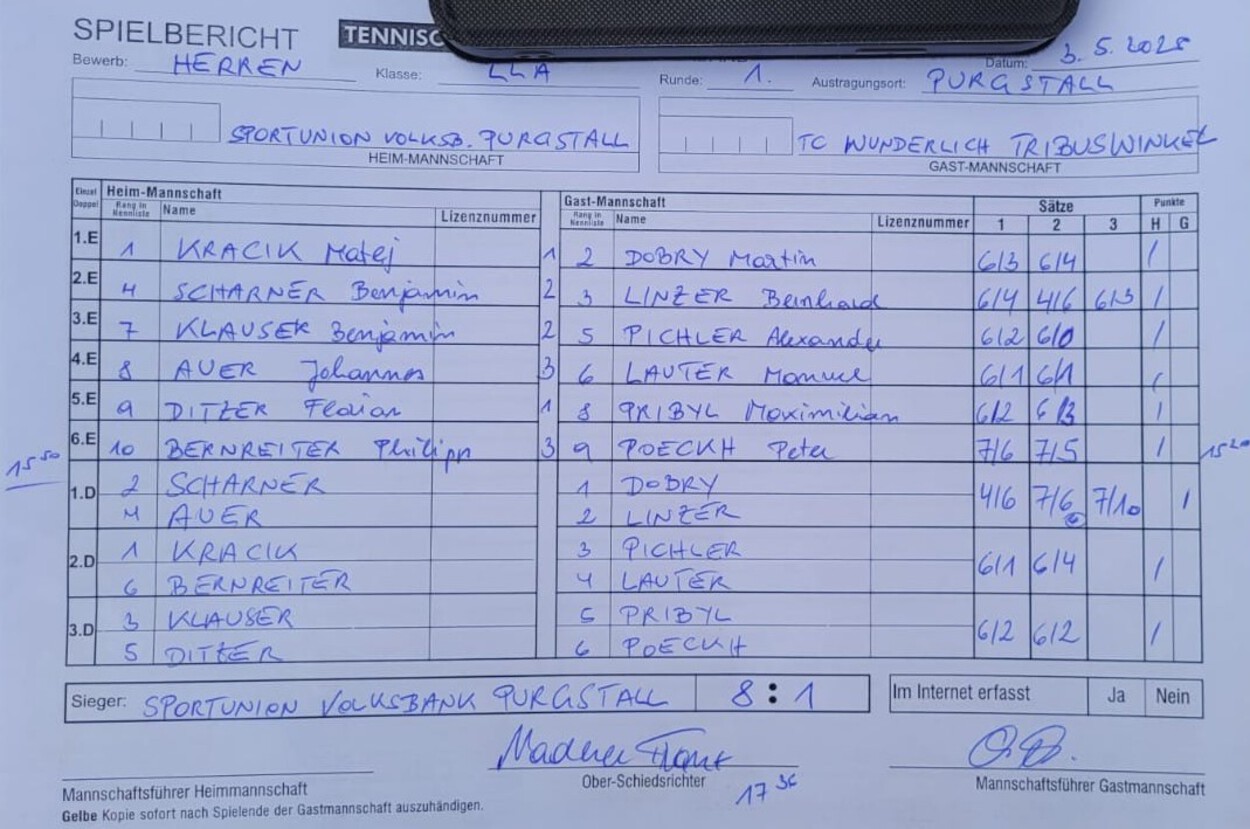 SPIELBERICHT TENNISC
Bewerb: HERREN Klasse: LLA Runde: 1. Austragungsort: PURGSTALL Datum: 3.5.2025
SPORTUNION VOLKSB. PURGSTALL TC WUNDERLICH TRIBUSWINKEL
HEIM-MANNSCHAFT GAST-MANNSCHAFT
Einzel Doppel Heim-Mannschaft Gast-Mannschaft Sätze Punkte
Rang in Nennliste Name Lizenznummer Rang in Nennliste Name Lizenznummer 1 2 3 H G
1.E 1 KRACIK Matej 1 2 DOBRY Martin 6/3 6/4 /
2.E 4 SCHARNER Benjamin 2 3 LINZER Bernhard 6/4 4/6 6/3 /
3.E 7 KLAUSER Benjamin 2 5 PICHLER Alexander 6/2 6/0 /
4.E 8 AUER Johannes 3 6 LAUTER Manuel 6/1 6/1 /
5.E 9 DITZER Florian 1 8 PRIBYL Maximilian 6/2 6/3 /
6.E 10 BERNREITER Philipp 3 9 POECKH Peter 7/6 7/5 / 15 20
15 50
1.D 2 SCHARNER 1 DOBRY 4/6 7/6 6 7/10 /
4 AUER 2 LINZER
2.D 1 KRACIK 3 PICHLER 6/1 6/4 /
6 BERNREITER 4 LAUTER
3.D 3 KLAUSER 5 PRIBYL 6/2 6/2 /
5 DITZER 6 POECKH
Sieger: SPORTUNION VOLKSBANK PURGSTALL 8 : 1 Im Internet erfasst Ja Nein
Maderer Franz
Mannschaftsführer Heimmannschaft Ober-Schiedsrichter Mannschaftsführer Gastmannschaft
17 36
Gelbe Kopie sofort nach Spielende der Gastmannschaft auszuhändigen.